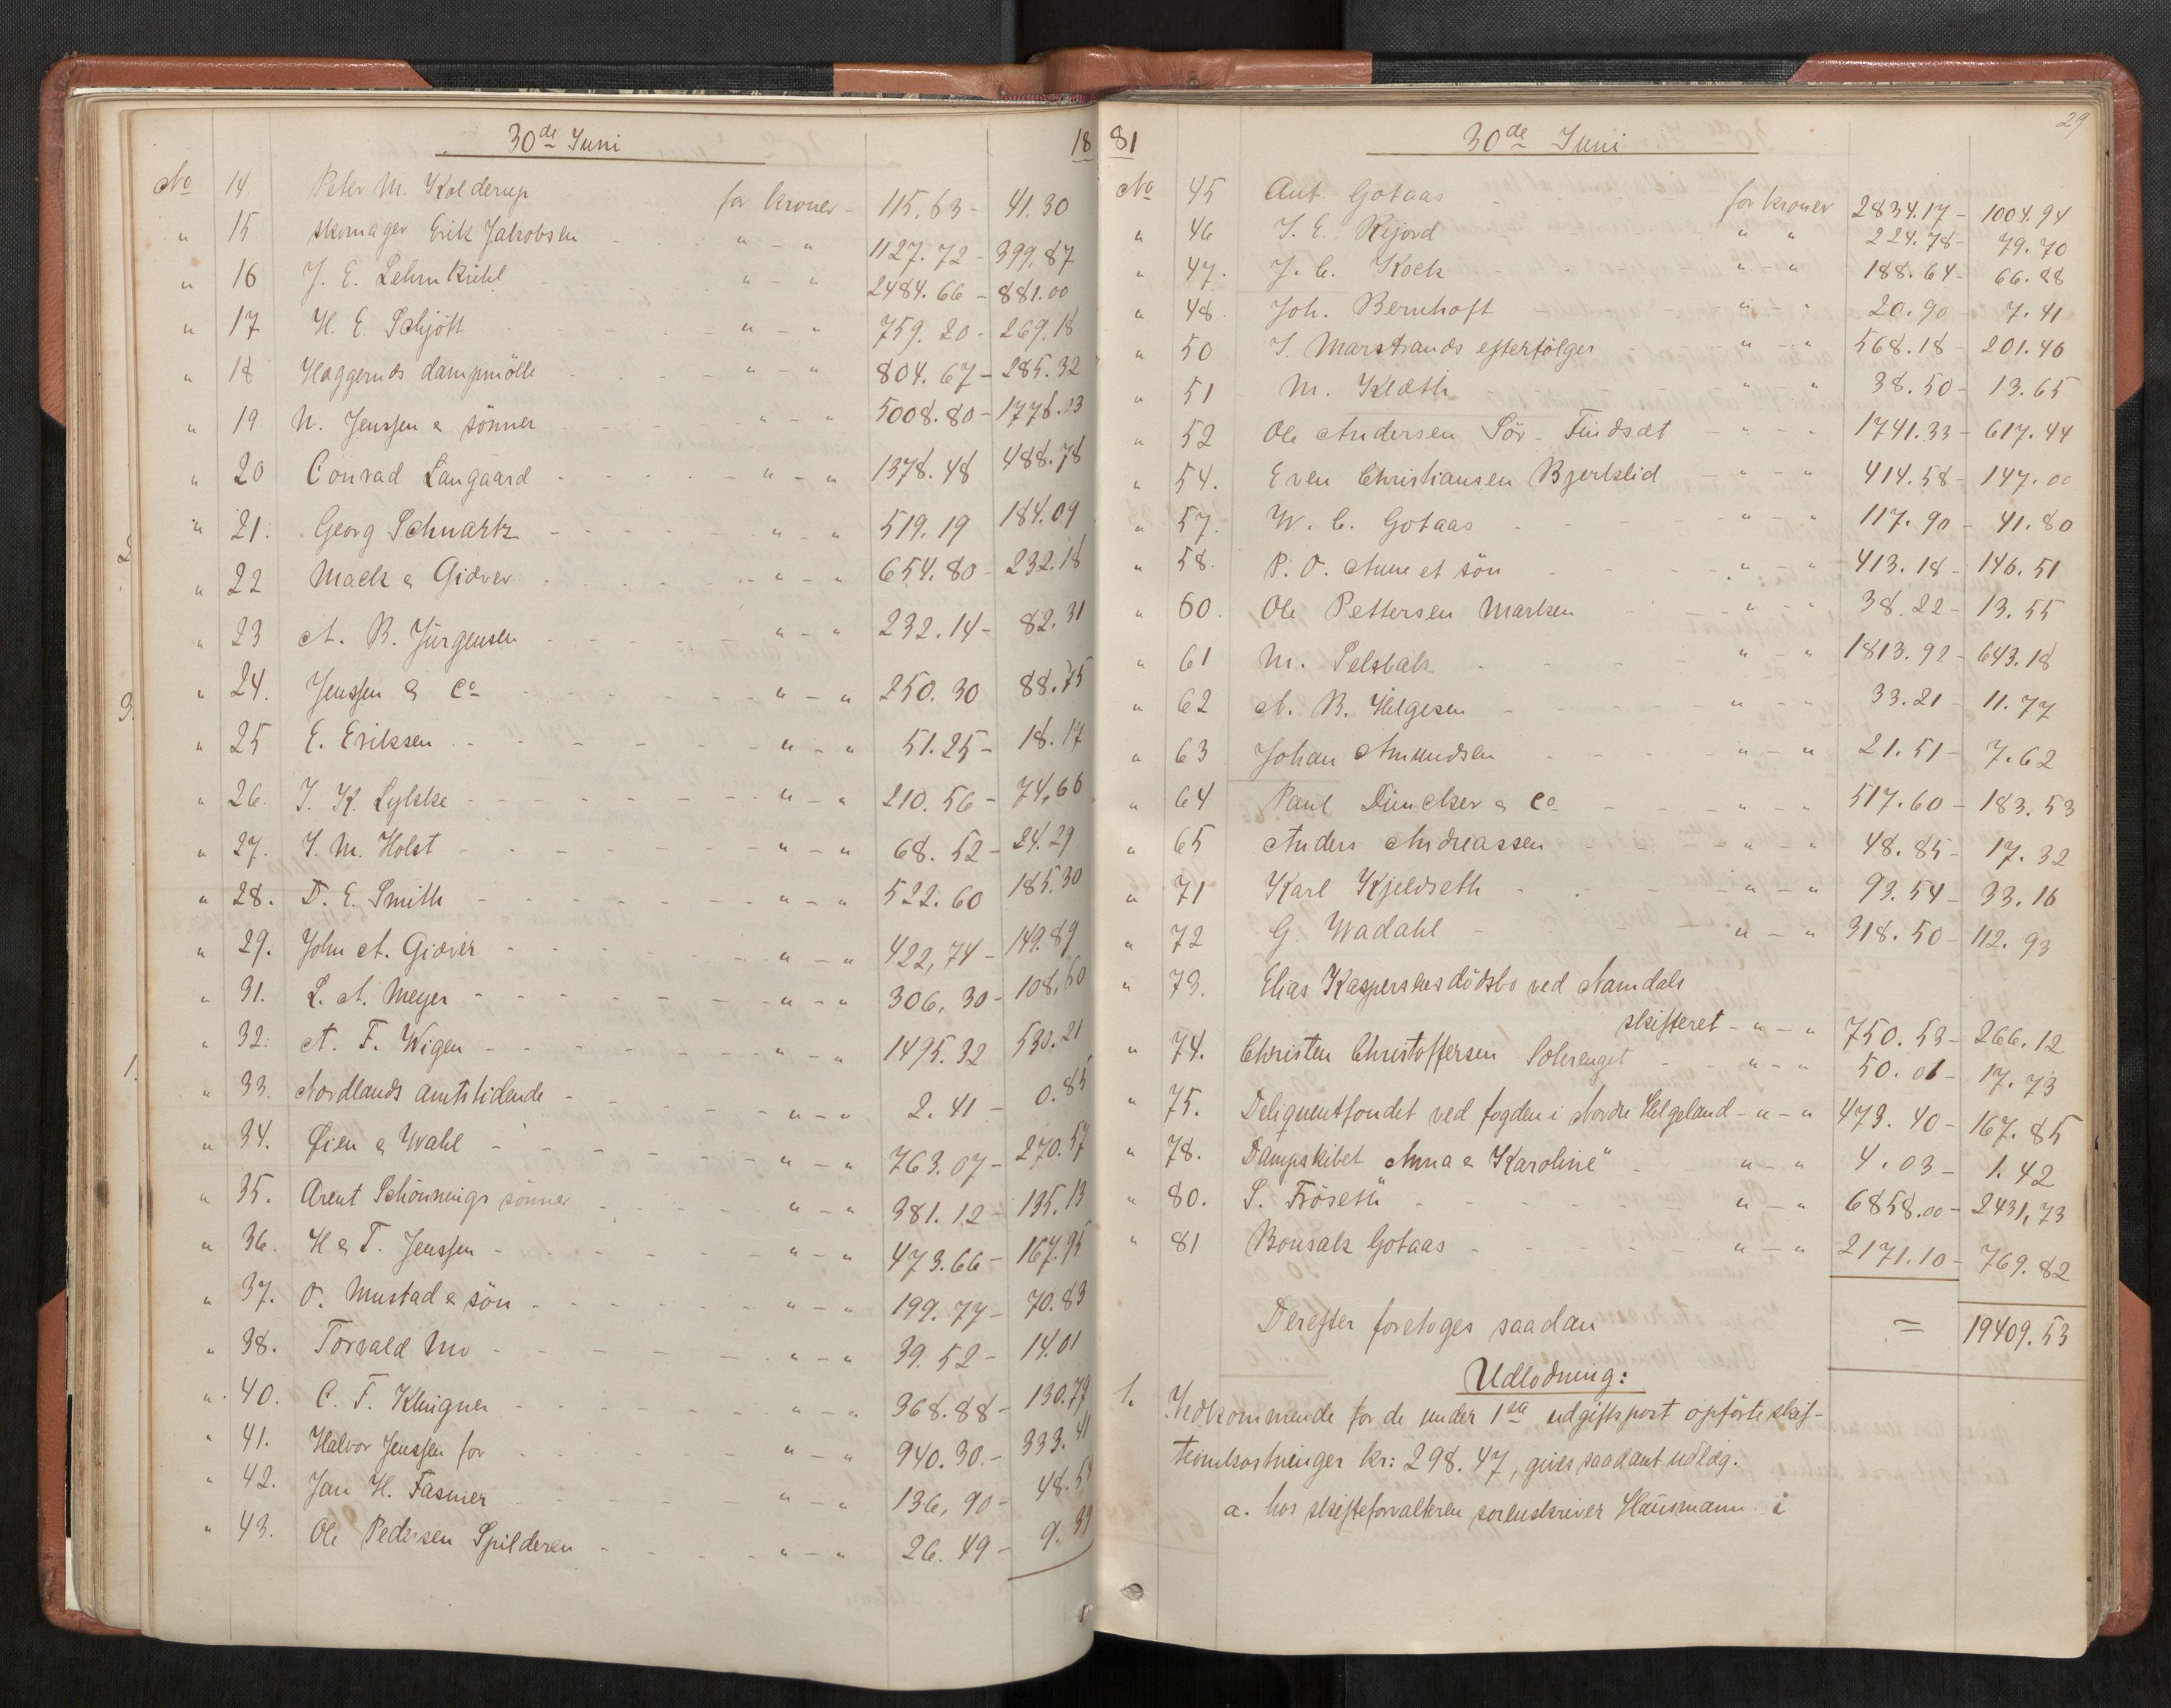 30de Juni 18
No 14 Peter M. Kolderup for kroner - 115.63 - 41.30
" 15 skomager Erik Jakobsen " - " 1127.72 - 399.87
" 16 J. E. Lehmkühl " - " 2484.66 - 881.00
" 17 H. E. Schjött " - " 759.20 - 269.18
" 18 Haggernds dampmölle " - " 804.67 - 285.32
" 19 N. Jenssen & sönner " - " 5008.80 - 1776.03
" 20 Conrad Langaard " - " 1378.48 488.78
" 21. Georg Schwartz " - " 519.19 184.09
" 22 Mack & Giæver " - " 654.80 - 232.18
" 23 A. B. Jürgensen " - " 232.14 - 82.31
" 24. Jenssen & Co " - " 250.30 88.75
" 25 E. Eriksen " - " 51.25 - 18.17
" 26. J. K. Lykke " - " 210.56 - 74,66
" 27. J. M. Holst " - " 68.52 - 24.29
" 28. D. E. Smith " - " 522.60 185.30
" 29. John A. Giæver " - " 422,74 - 149.89
" 31. L. A. Meyer " - " 306,30 - 108,60
" 32: A. F. Wigen " - " 1495.32 530.21
" 33. Nordlands amtstidende " - " 2.41 - 0.85
" 34. Øien & Wahl " - " 763.07 - 270.57
" 35. Arent Schönnings sönner " - " 381.12 - 135.13
" 36. H & F. Jenssen " - " 473.66 - 167.95
" 37. O. Mustad & sön " - " 199.77 - 70.83
" 38. Torvald Mo " - " 39.52 - 14.01
" 40. C. F. Klingner " - " 368.88 - 130.79
" 41. Halvor Jenssen for " - " 940.30 - 333.41
" 42. Jan H. Fasmer " - " 136,90 - 48.54
" 43. Ole Pedersen Spilderen " - " 26.49 - 9.39
2
3.
1.
29
81 30de Juni
No 45 Ant Gotaas for kroner 2834.17 - 1004.94
" 46 J. E. Rijord " " 224.78 - 79.70
" 47. J. C. Kock " - " 188.64 - 66.88
" 48 Joh. Bernhoft " - " 20.90 - 7.41
" 50 J. Marstrands efterfölger " - " 568.18 - 201.46
" 51 M. Klæth " - " 38.50 - 13.65
" 52 Ole Andersen Sör-Findsæt " - " 1741.33 - 617.44
" 54. Even Christiansen Bjerkslid " - " 414.58 - 147.00
" 57. W. C. Gotaas " - " 117.90 - 41.80
" 58. P. O. Aune et sön " - " 413.18 - 146.51
" 60. Ole Pettersen Marken " - " 38.22 - 13.55
" 61 M. Selsbak " - " 1813.92 - 643.18
" 62 A. B. Helgesen " - " 33.21 - 11.77
" 63 Johan Amundsen " - " 21.51 - 7.62
" 64 Paul Düncker & Co " - " 517.60 - 183.53
" 65 Anders Andreassen " - " 48.85 - 17.32
" 71 Karl Kjeldseth " - " 93.54 - 33.16
" 72 G. Wadahl " - " 318.50 - 112.93
" 73. Elias Kaspersens dödsbo ved Namdals
skifteret - " - " 750.53 - 266.12
" 74. Christen Christoffersen Soterenget " - " 50.01 - 17.73
" 75. Deliquentfondet ved fogden i Nordre Helgeland - " - " 473.40 - 167.85
" 78. Dampskibet Anna & Karoline" " - " 4.03 - 1.42
" 80. S. Fröseth " - " 6858.00 - 2431,73
" 81 Bonsak Gotaas " - " 2171.10 - 769.82
Derefter foretoges saadan = 19409.53
Udlodning:
1. Vedkommende for de under 1ste udgiftspost opförte skif-
teomkostninger kr: 298.47, gives saadant udlæg.
a. hos skifteforvalteren sorenskriver Hausmann i